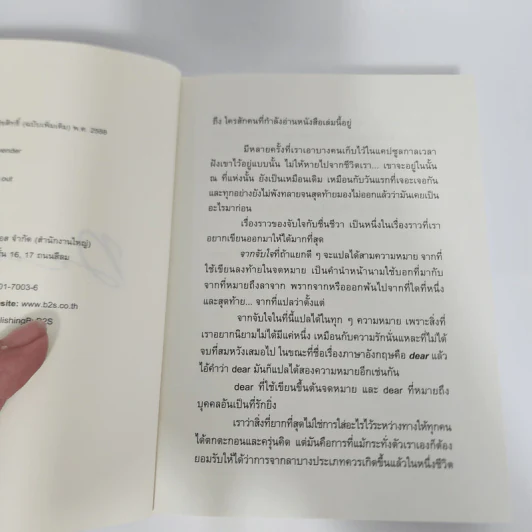 สิทธิ์ (ฉบับเพิ่มเติม) พ.ศ. 2558
ender
out
อส จำกัด (สำนักงานใหญ่)
ั้น 16, 17 ถนนสีลม
01-7003-6
site: www.b2s.co.th
lishingB2S
ถึง ใครสักคนที่กำลังอ่านหนังสือเล่มนี้อยู่
มีหลายครั้งที่เราเอาบางคนเก็บไว้ในแคปซูลกาลเวลา
ฝังเขาไว้อยู่แบบนั้น ไม่ให้หายไปจากชีวิตเรา... เขาจะอยู่ในนั้น
ณ ที่แห่งนั้น ยังเป็นเหมือนเดิม เหมือนกับวันแรกที่เจอะเจอกัน
และทุกอย่างยังไม่พังทลายจนสุดท้ายมองไม่ออกแล้วว่ามันเคยเป็น
อะไรมาก่อน
เรื่องราวของจับใจกับชื่นชีวา เป็นหนึ่งในเรื่องราวที่เรา
อยากเขียนออกมาให้ได้มากที่สุด
จากจับใจที่ถ้าแยกดี ๆ จะแปลได้สามความหมาย จากที่
ใช้เขียนลงท้ายในจดหมาย เป็นคำนำหน้านามใช้บอกที่มากับ
จากที่หมายถึงลาจาก พรากจากหรือออกพ้นไปจากที่ใดที่หนึ่ง
และสุดท้าย... จากที่แปลว่าตั้งแต่
จากจับใจในที่นี้แปลได้ในทุก ๆ ความหมาย เพราะสิ่งที่
เราอยากนิยามไม่ได้มีแค่หนึ่ง เหมือนกับความรักนั่นแหละที่ไม่ได้
จบที่สมหวังเสมอไป ในขณะที่ชื่อเรื่องภาษาอังกฤษคือ dear แล้ว
ไอ้คำว่า dear มันก็แปลได้สองความหมายอีกเช่นกัน
dear ที่ใช้เขียนขึ้นต้นจดหมาย และ dear ที่หมายถึง
บุคคลอันเป็นที่รักยิ่ง
เราว่าสิ่งที่ยากที่สุดไม่ใช่การใส่อะไรไว้ระหว่างทางให้ทุกคน
ได้ตกตะกอนและครุ่นคิด แต่มันคือการที่แม้กระทั่งตัวเราเองก็ต้อง
ยอมรับให้ได้ว่าการจากลาบางประเภทควรเกิดขึ้นแล้วในหนึ่งชีวิต